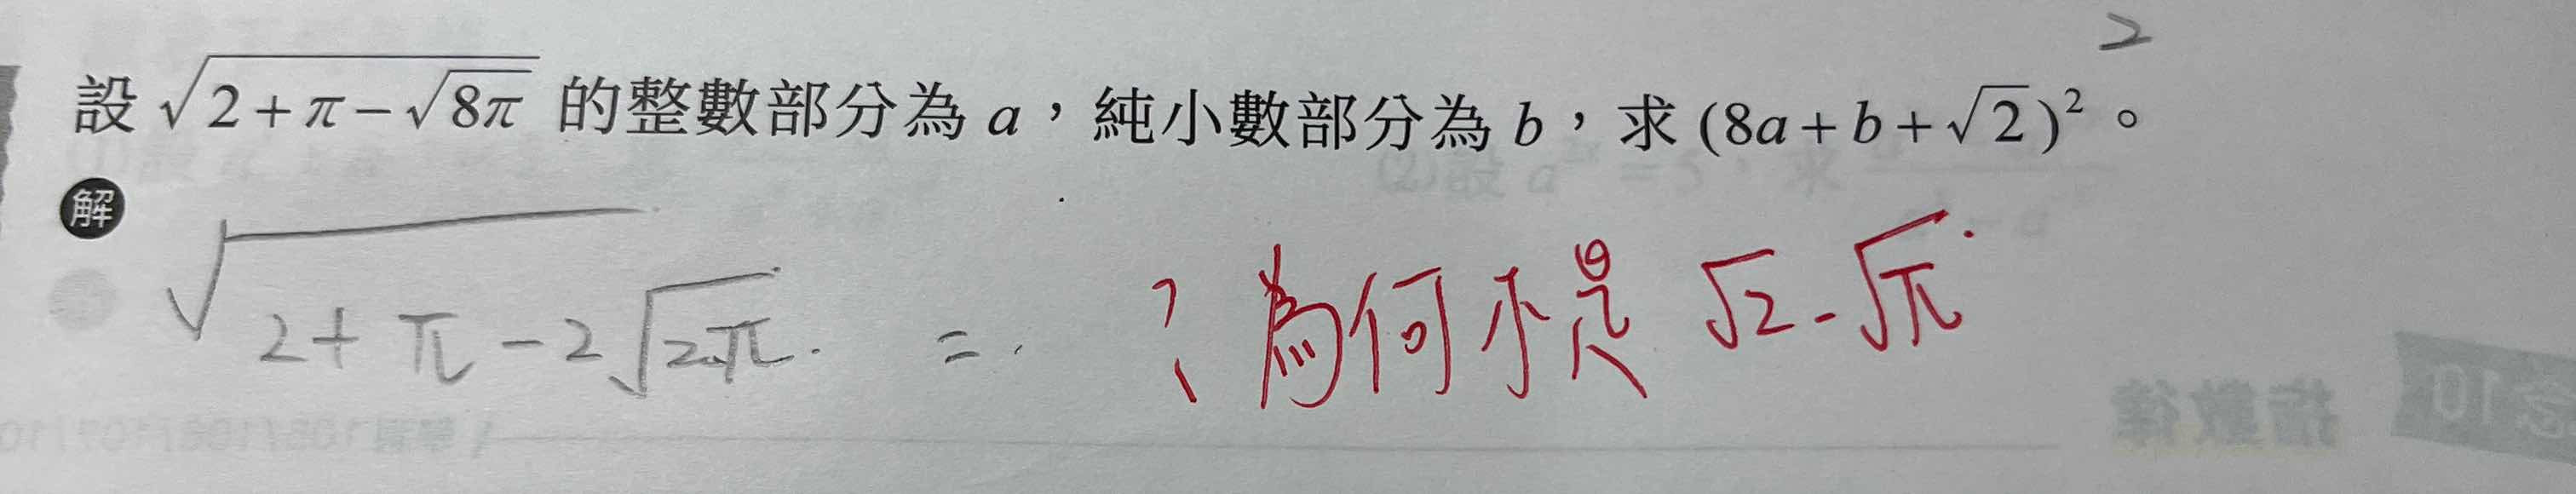 2
設 √(2+π−√(8π)) 的整數部分為 a，純小數部分為 b，求 (8a+b+√2)²。
解
√(2+π−2√(2·π)) = ？為何不是 √2−√π
指數律
10